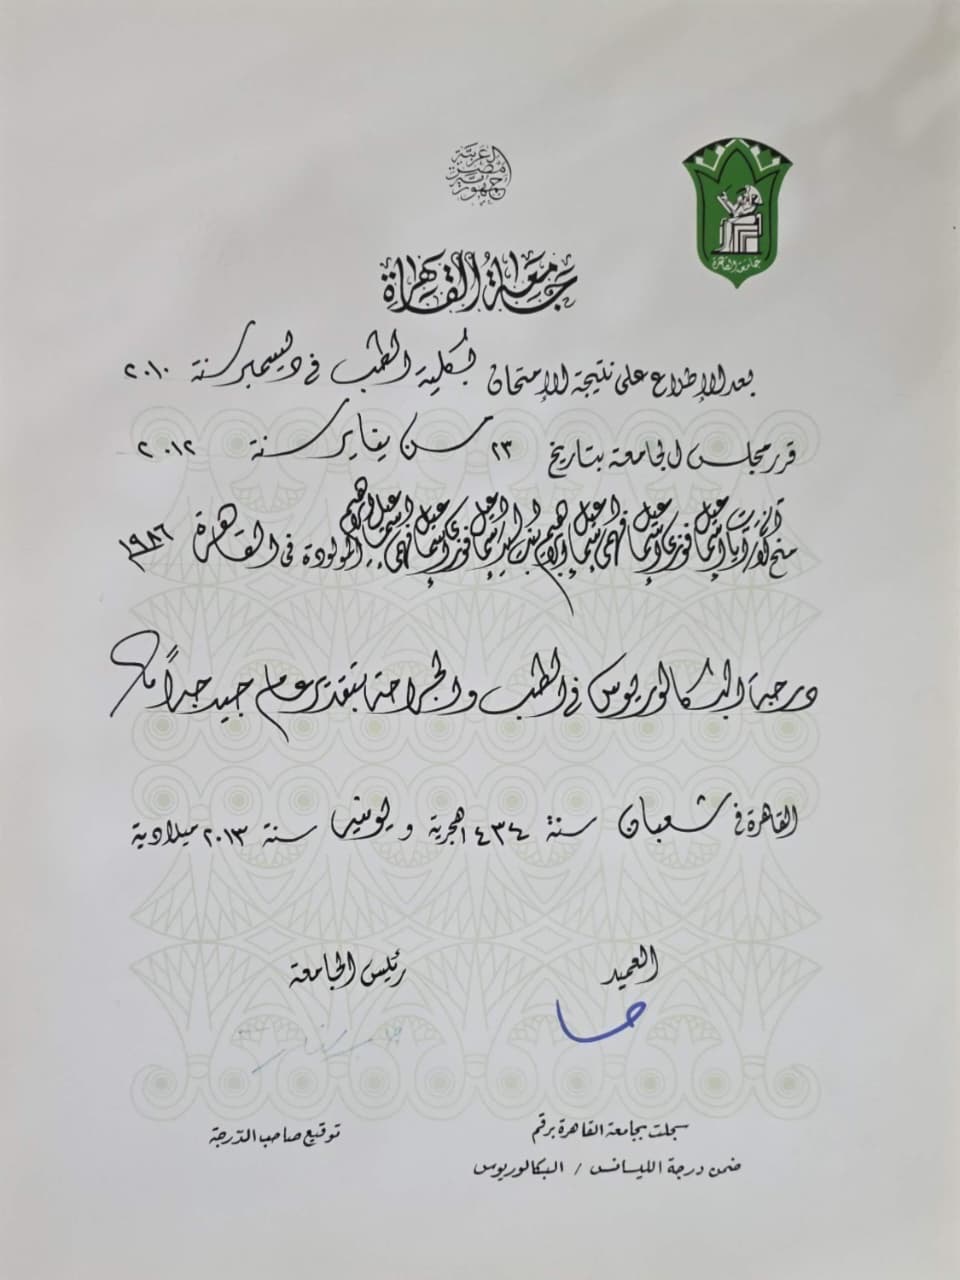 جمهورية مصر العربية
جامعة القاهرة
جامعة القاهرة
بعد الإطلاع على نتيجة الإمتحان لكلية الطب في ديسمبر سنة ٢٠١٠
قرر مجلس الجامعة بتاريخ ٢٣ من يناير سنة ٢٠١٢
منح الآنسة المولودة في القاهرة ١٩٨٦
درجة البكالوريوس في الطب والجراحة بتقدير عام جيد جداً
القاهرة في شعبان سنة ١٤٣٤ هجرية و يونيو سنة ٢٠١٣ ميلادية
العميد
رئيس الجامعة
سجلت بجامعة القاهرة برقم
توقيع صاحب الدرجة
ضمن درجة الليسانس / البكالوريوس